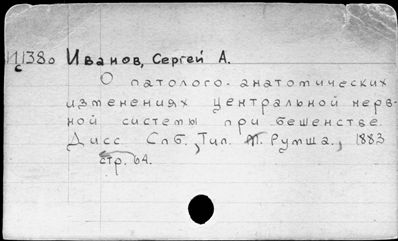 И1380 Иванов, Сергей А.
с
О патолого-анатомических
изменениях центральной нерв-
ной системы при бешенстве.
Дисс. Спб., Тип. Т. Румша., 1883
стр. 64.